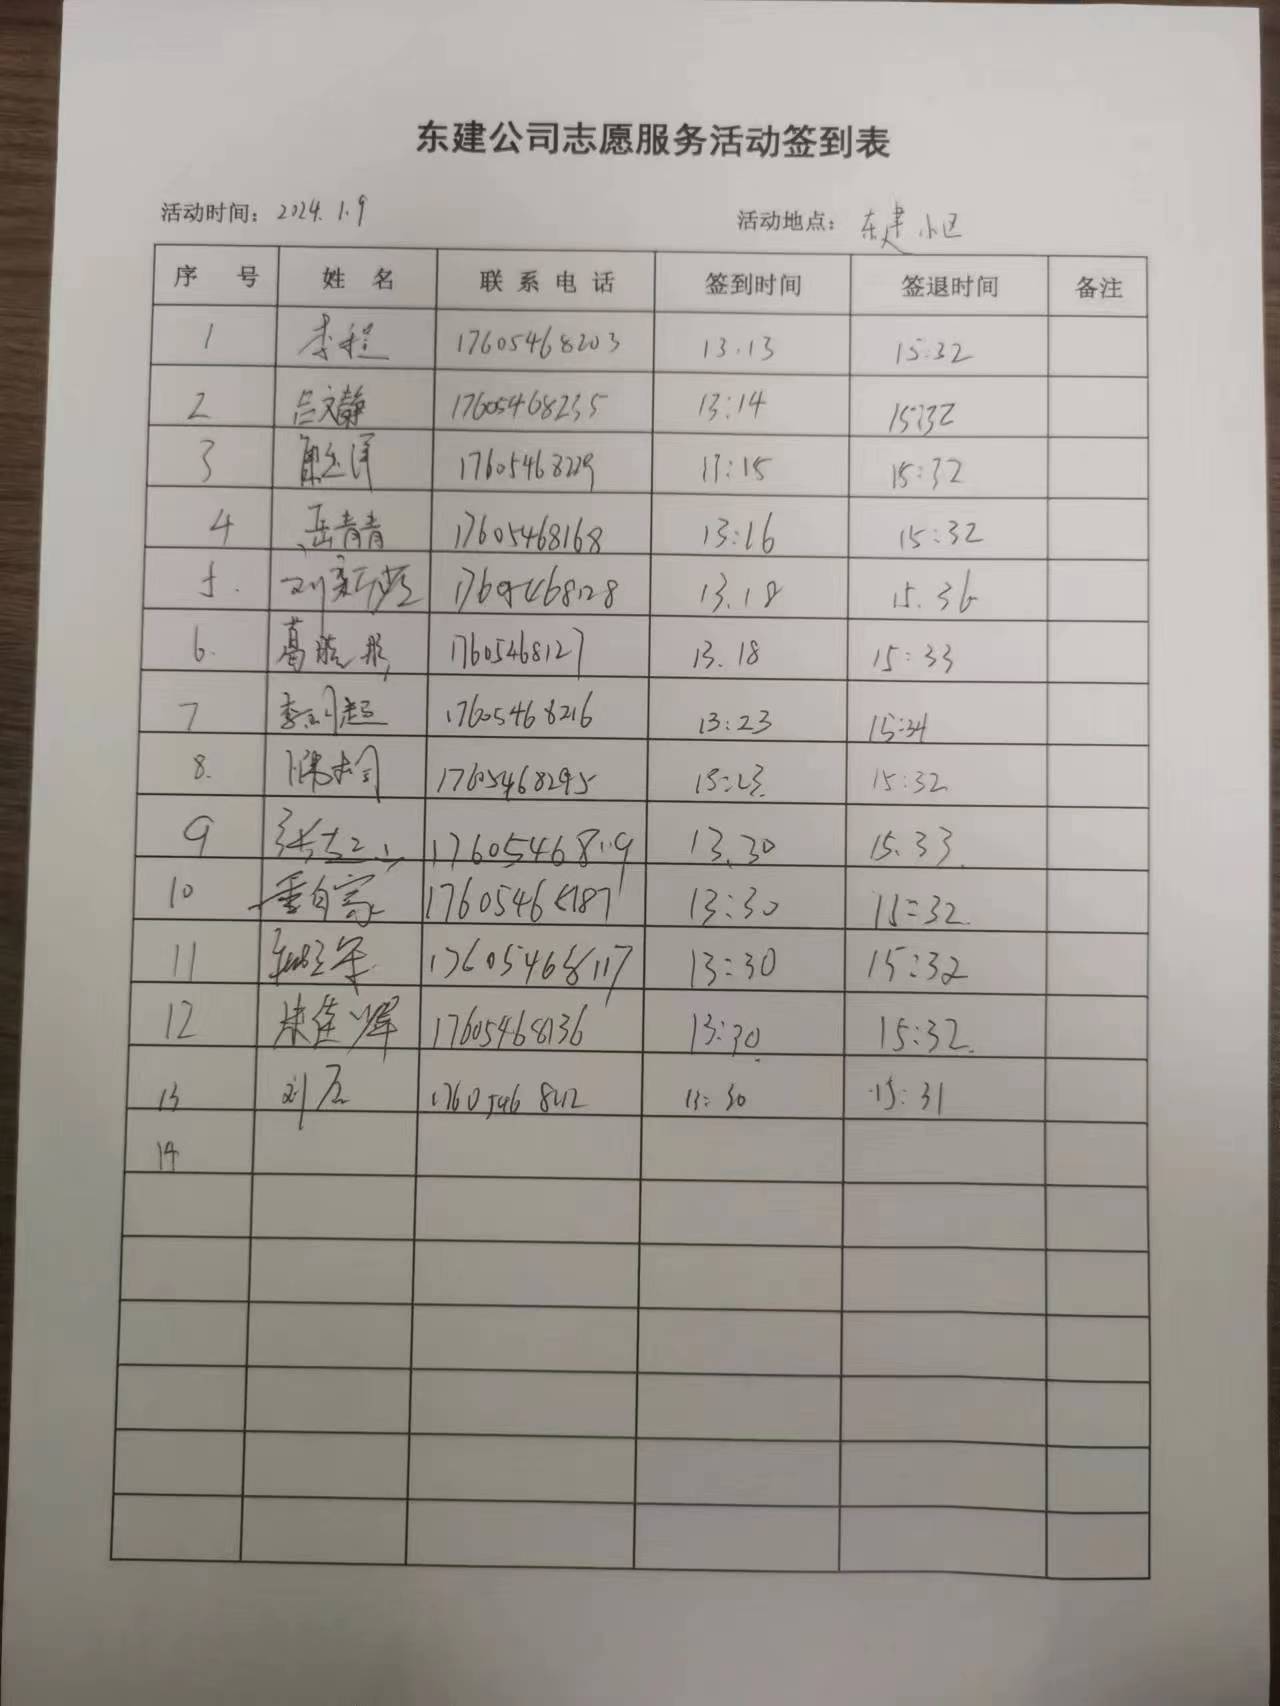 东建公司志愿服务活动签到表
活动时间：2024.1.9 活动地点：东建小区
序 号 姓 名 联 系 电 话 签到时间 签退时间 备注
1 李程 17605468203 13.13 15:32
2 吕文静 17605468235 13:14 15:32
3 17605468229 13:15 15:32
4 岳青青 17605468168 13:16 15:32
5. 17605468128 13.18 15.36
6. 葛晓彤 17605468127 13.18 15:33
7 17605468216 13:23 15:34
8. 17605468295 13:23 15:32
9 13.30 15.33
10 17605468187 13:30 15:32
11 17605468117 13:30 15:32
12 17605468136 13:30 15:32
13 13:30 15:31
14